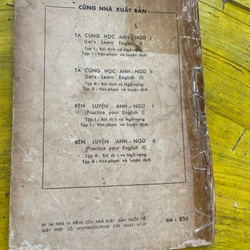 CÙNG NHÀ XUẤT BẢN
TA CÙNG HỌC ANH-NGỮ I
(Let's Learn English I)
Tập I : Bài dịch và Ngữ-vựng
Tập II : Văn-phạm và Luyện dịch
TA CÙNG HỌC ANH-NGỮ II
(Let's Learn English II)
Tập I : Bài dịch và Ngữ-vựng
Tập II : Văn-phạm và Luyện dịch
RÈN LUYỆN ANH-NGỮ I
(Practice your English I)
Tập I : Bài dịch và Ngữ-vựng
Tập II : Văn-phạm và Luyện dịch
RÈN LUYỆN ANH-NGỮ II
(Practice your English II)
Tập I : Bài dịch và Ngữ-vựng
Tập II : Văn-phạm và Luyện dịch
IN TẠI NHÀ IN RIÊNG CỦA NHÀ XUẤT BẢN
GIẤY PHÉP SỐ
Giá : 25đ